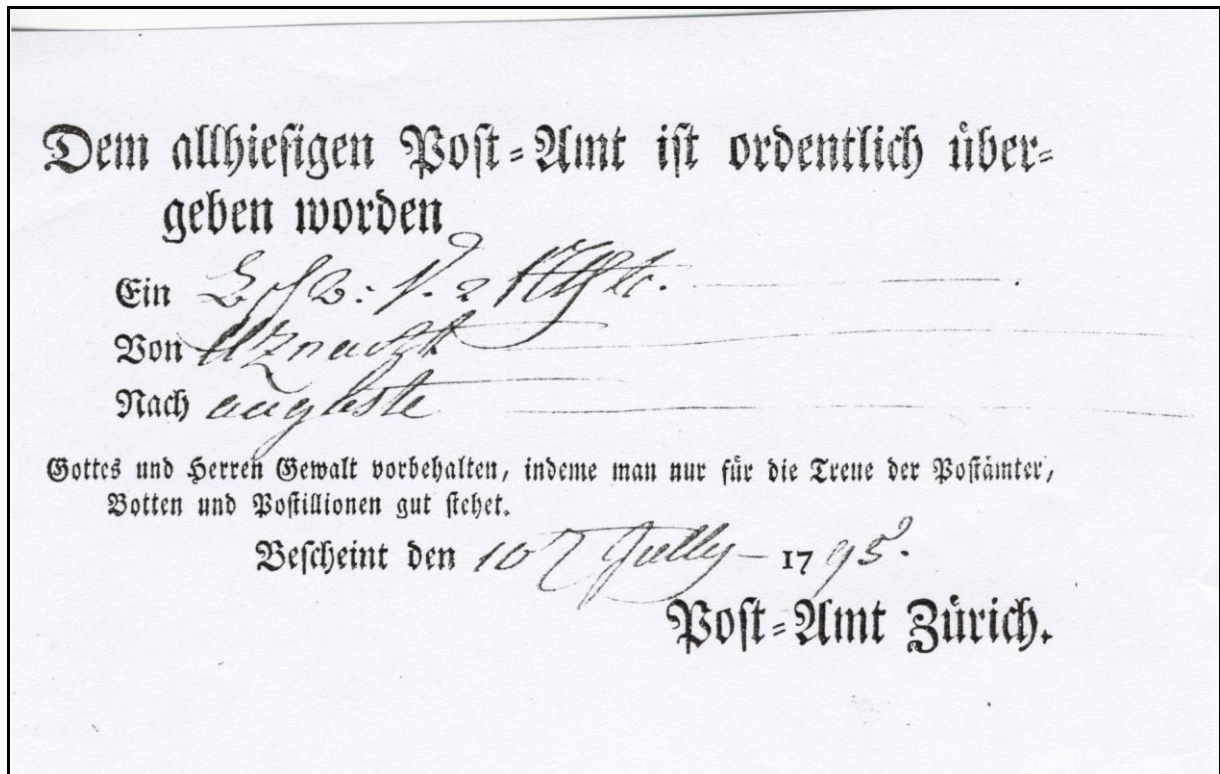 Dem allhiesigen Post-Amt ist ordentlich über-
geben worden
Ein
Von Uznacht
Nach auguste
Gottes und Herren Gewalt vorbehalten, indeme man nur für die Treue der Postämter,
Botten und Postillionen gut stehet.
Bescheint den 10 Jully - 1795.
Post-Amt Zürich.